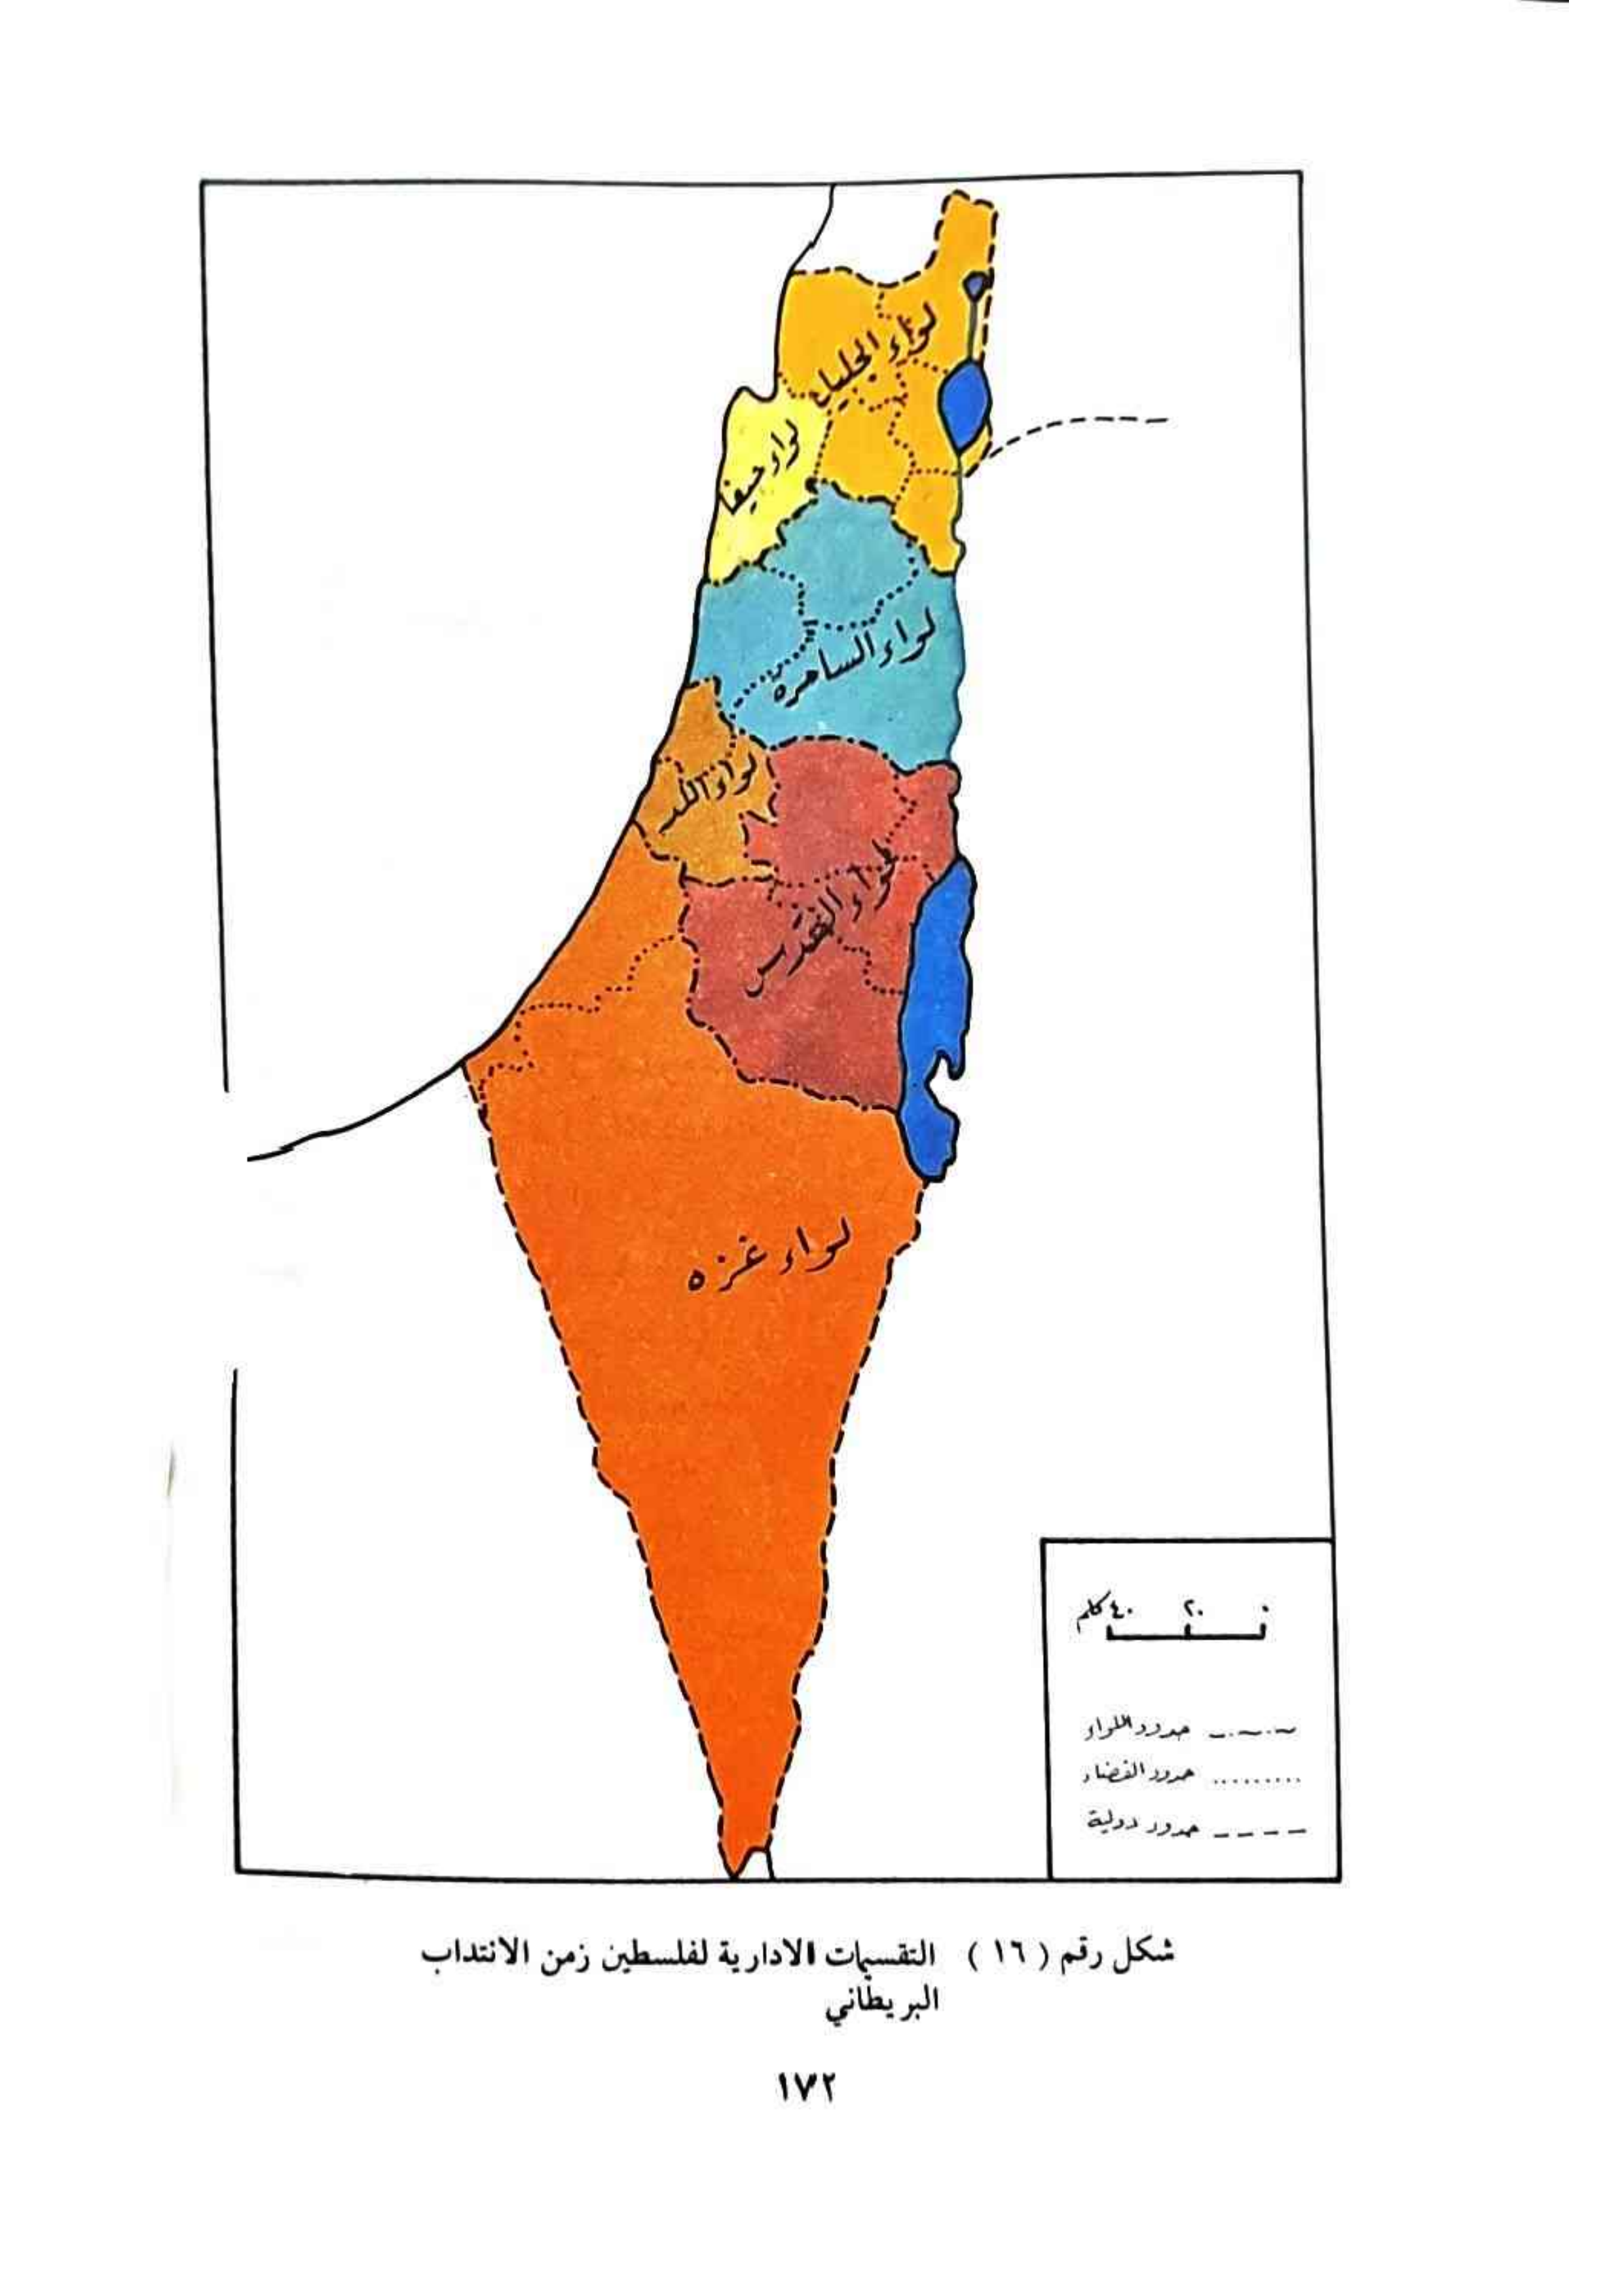 لواء الجليل
لواء حيفا
لواء السامرة
لواء اللد
لواء القدس
لواء غزه
٠ ٢٠ ٤٠ كلم
حدود اللواء
حدود القضاء
حدود دولية
شكل رقم ( ١٦ ) التقسيمات الادارية لفلسطين زمن الانتداب
البريطاني
١٧٢